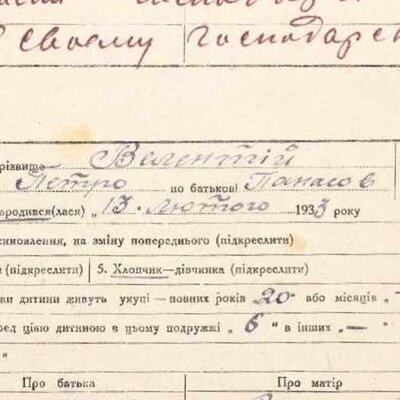 своєму господарс
різвище Велентій
Петро по батькові Панасов
ародився(лася) „ 13 „ лютого 1933 року
иновлення, на зміну попереднього (підкреслити)
и (підкреслити) 5. Хлопчик—дівчинка (підкреслити)
ки дитини живуть укупі — повних років „ 20 „ або місяців „
ред цією дитиною в цьому подружжі „ 6 “ в інших „ —
“
Про батька Про матір